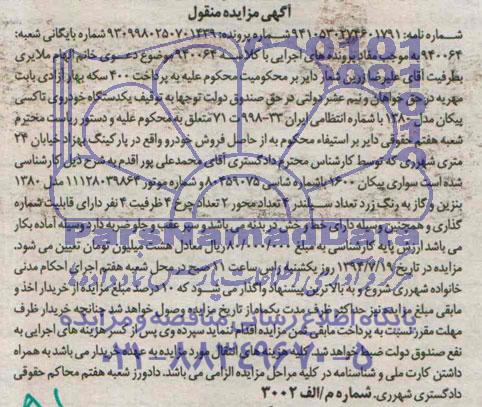 آگهی مزایده منقول
شماره نامه: ۹۴۱۰۵۳۰۲۷۴۶۰۱۷۹۱ شماره پرونده: ۹۳۰۹۹۸۰۲۵۰۷۰۱۴۳۹ شماره بایگانی شعبه:
۹۴۰۰۶۴ به موجب مفاد پرونده های اجرایی با کلاسه ۹۴۰۰۶۴ موضوع دعوی خانم الهام ملایری
بطرفیت آقای علیرضا زرین شعار دایر بر محکومیت محکوم علیه به پرداخت ۴۰۰ سکه بهار آزادی بابت
مهریه در حق خواهان و نیم عشر دولتی در حق صندوق دولت توجها به توقیف یکدستگاه خودروی تاکسی
پیکان مدل ۱۳۸۰ با شماره انتظامی ایران ۳۳-۹۹۸ت۷۱ متعلق به محکوم علیه و دستور ریاست محترم
شعبه هفتم حقوقی دایر بر استیفاء محکوم به از حاصل فروش خودرو واقع در پارکینگ بهزاد خیابان ۲۴
متری شهرری که توسط کارشناس محترم دادگستری آقای محمدعلی پور اقدم به شرح ذیل کارشناسی
شده است سواری پیکان ۱۶۰۰ باشماره شاسی ۸۰۴۵۹۰۷۵ و شماره موتور ۱۱۱۲۸۰۳۹۸۶۴ مدل ۱۳۸۰
بنزین و گاز به رنگ زرد تعداد سیلندر ۴ تعداد محور ۲ تعداد چرخ ۴ ظرفیت ۴ نفر دارای قابلیت شماره
گذاری و همچنین وسیله دارای خط و خش در بدنه می باشد و سپر عقب و جلو ضربه دارد وسیله آماده بکار
می باشد ارزش پایه کارشناسی به مبلغ ۸۰/۰۰۰/۰۰۰ ریال معادل هشت میلیون تومان تعیین می شود.
مزایده در تاریخ ۱۳۹۴/۷/۱۹ روز یکشنبه راس ساعت ۱۱ صبح در محل شعبه هفتم اجرای احکام مدنی
خانواده شهرری شروع و به بالاترین پیشنهاد واگذار می شود که ۱۰ درصد مبلغ مزایده از خریدار اخذ و
مابقی مبلغ مزایده نیز حداکثر ظرف مدت یکماه از تاریخ مزایده وصول خواهد شد چنانچه خریدار ظرف
مهلت مقرر نسبت به پرداخت مابقی ثمن مزایده اقدام ننماید سپرده وی پس از کسر هزینه های اجرایی به
نفع صندوق دولت ضبط خواهد شد. کلیه هزینه های انتقال مورد مزایده به عهده خریدار می باشد به همراه
داشتن کارت ملی و شناسنامه در کلیه مراحل مزایده الزامی می باشد. دادورز شعبه هفتم محاکم حقوقی
دادگستری شهرری. شماره م/الف ۳۰۰۲
ParsNamadData
پایگاه اطلاع رسانی مناقصه و مزایده
۰۲۱-۸۸۳۴۹۶۷۰-۵